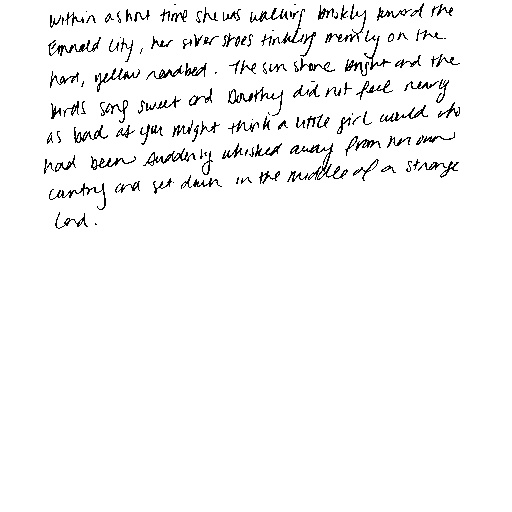 within a short time she was walking briskly toward the
Emerald City, her silver shoes tinkling merrily on the
hard, yellow roadbed. The sun shone bright and the
birds sang sweet and Dorothy did not feel nearly
as bad as you might think a little girl would who
had been suddenly whisked away from her own
country and set down in the middle of a strange
land.